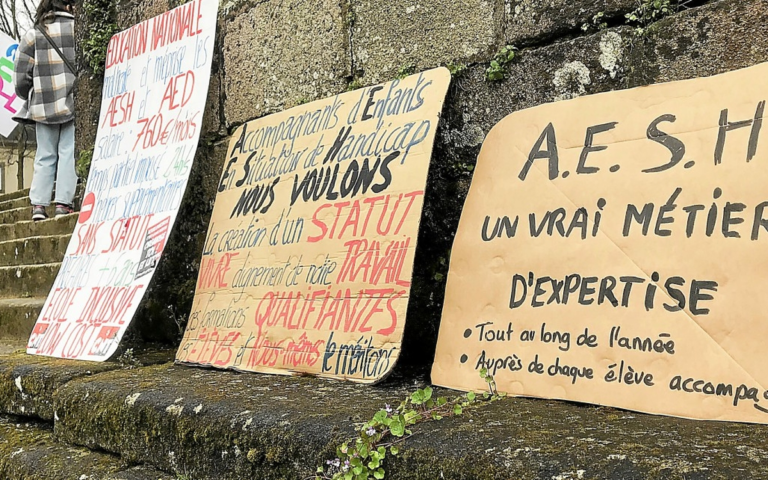 EDUCATION NATIONALE
et méprise les
AESH et AED
salaire 760€/mois
SANS STATUT
ECOLE INCLUSIVE
UN COST
Accompagnants d'Enfants
En Situation de Handicap
NOUS VOULONS
La création d'un STATUT
VIVRE dignement de notre TRAVAIL
des formations QUALIFIANTES
ELEVES et NOUS-mêmes le méritons
A.E.S.H
UN VRAI MÉTIER
D'EXPERTISE
• Tout au long de l'année
• Auprès de chaque élève accompag